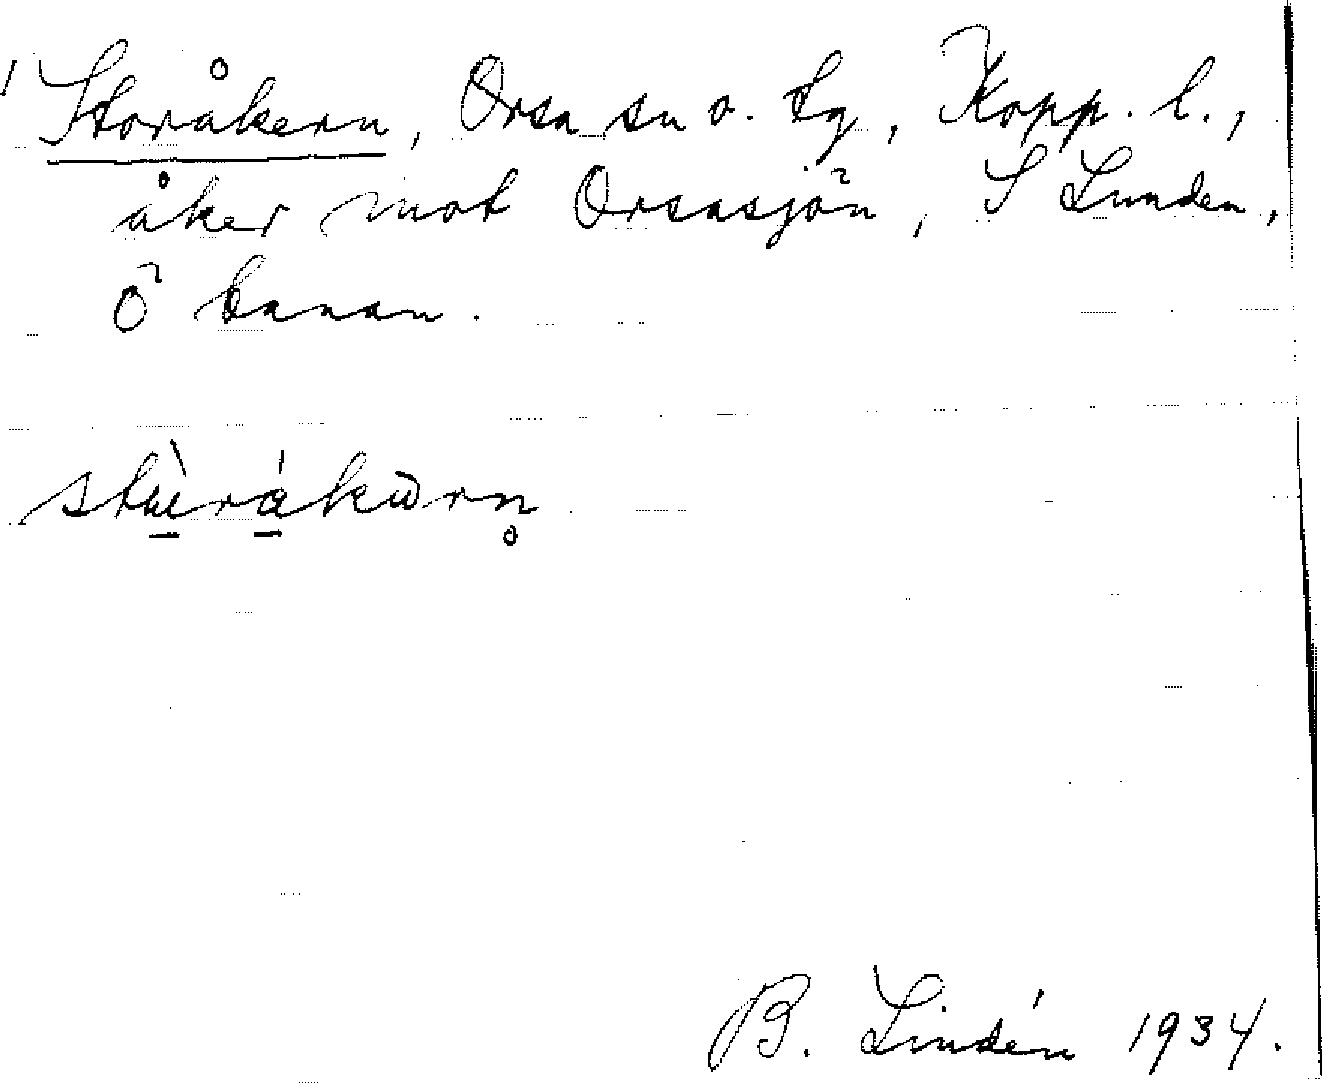 Storåkern, Orsa sn o. tg, Kopp. l.,
åker mot Orsasjön, S Lunden,
Ö banan.
stu̠̇̀rȧ̠́kơrn̥
B. Lindén 1934.